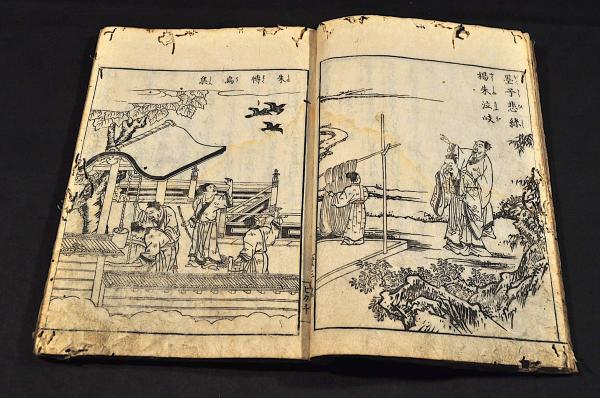 墨子悲絲
楊朱泣岐
朱博烏集